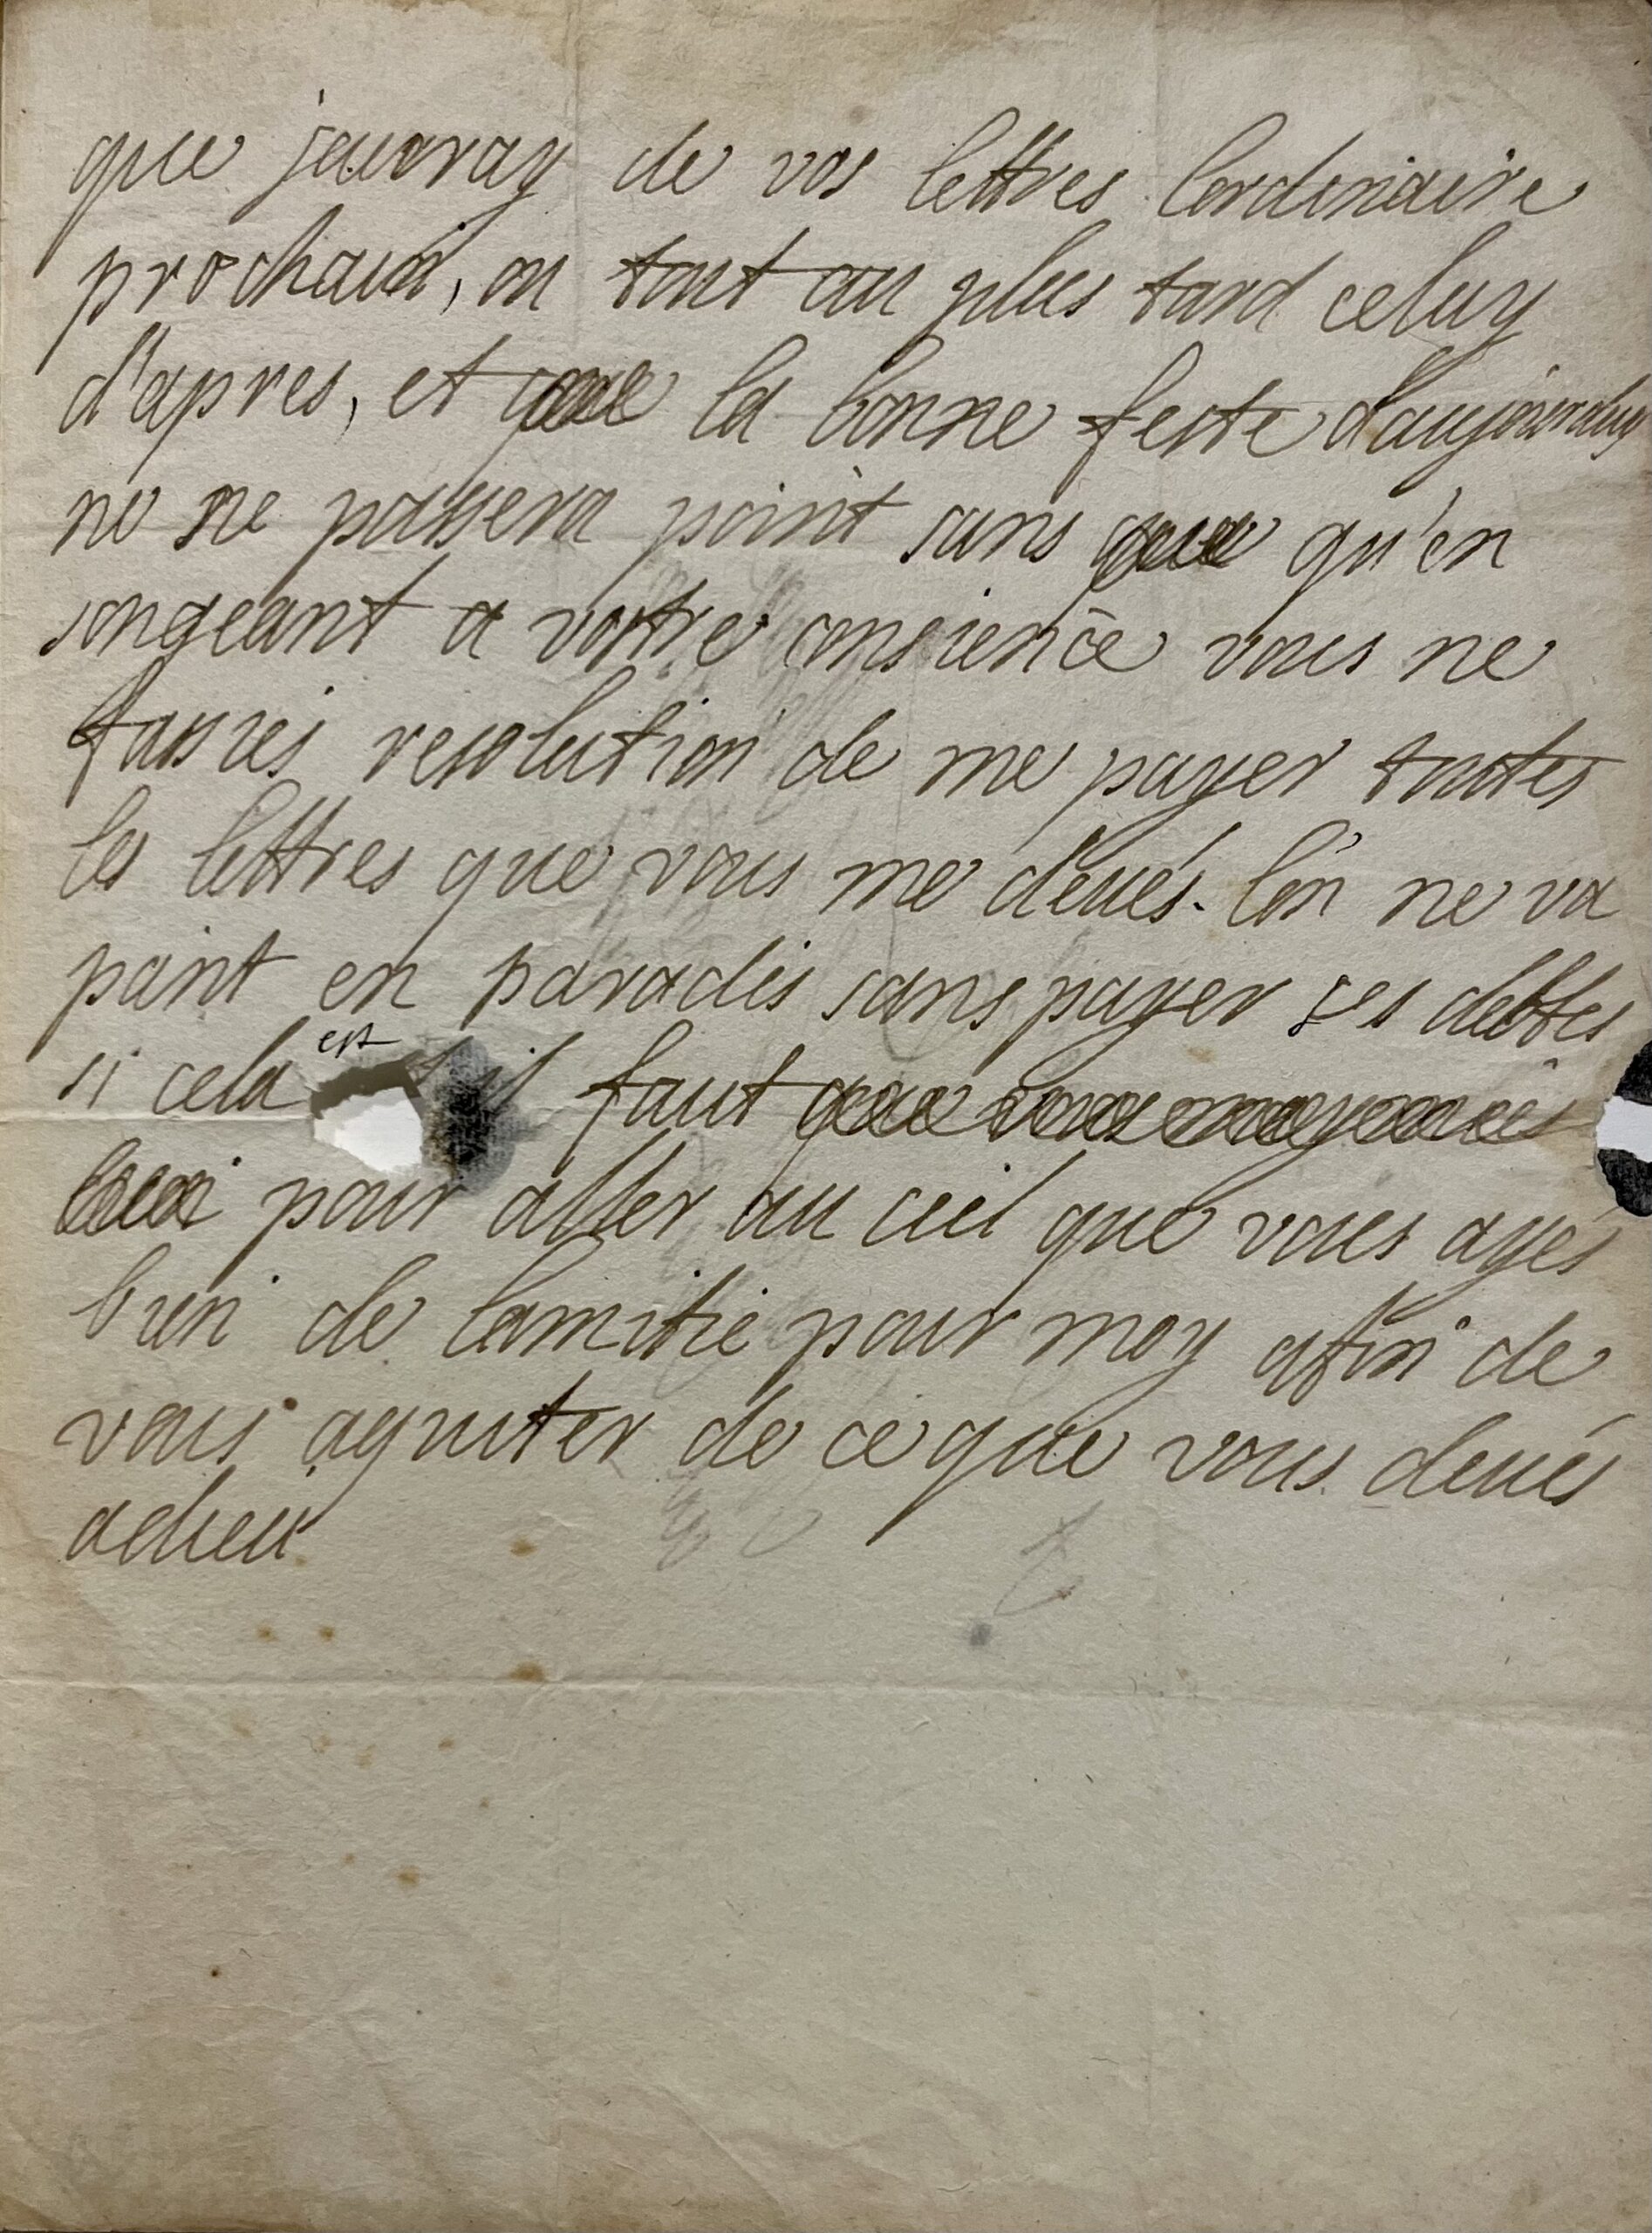 que jauray de vos lettres lordinaire
prochain, ou tout au plus tard celuy
d'apres, et que la bonne feste daujourduy
ne ne passera point sans que qu'en
songeant a vostre consience vous ne
fassiés resolution de me payer toutes
les lettres que vous me deués. lon ne va
point en paradis sans payer ses debtes
si cela est il faut que vous
pour aller au ciel que vous ayés
bien de lamitié pour moy afin de
vous aquiter de ce que vous deués
adieu